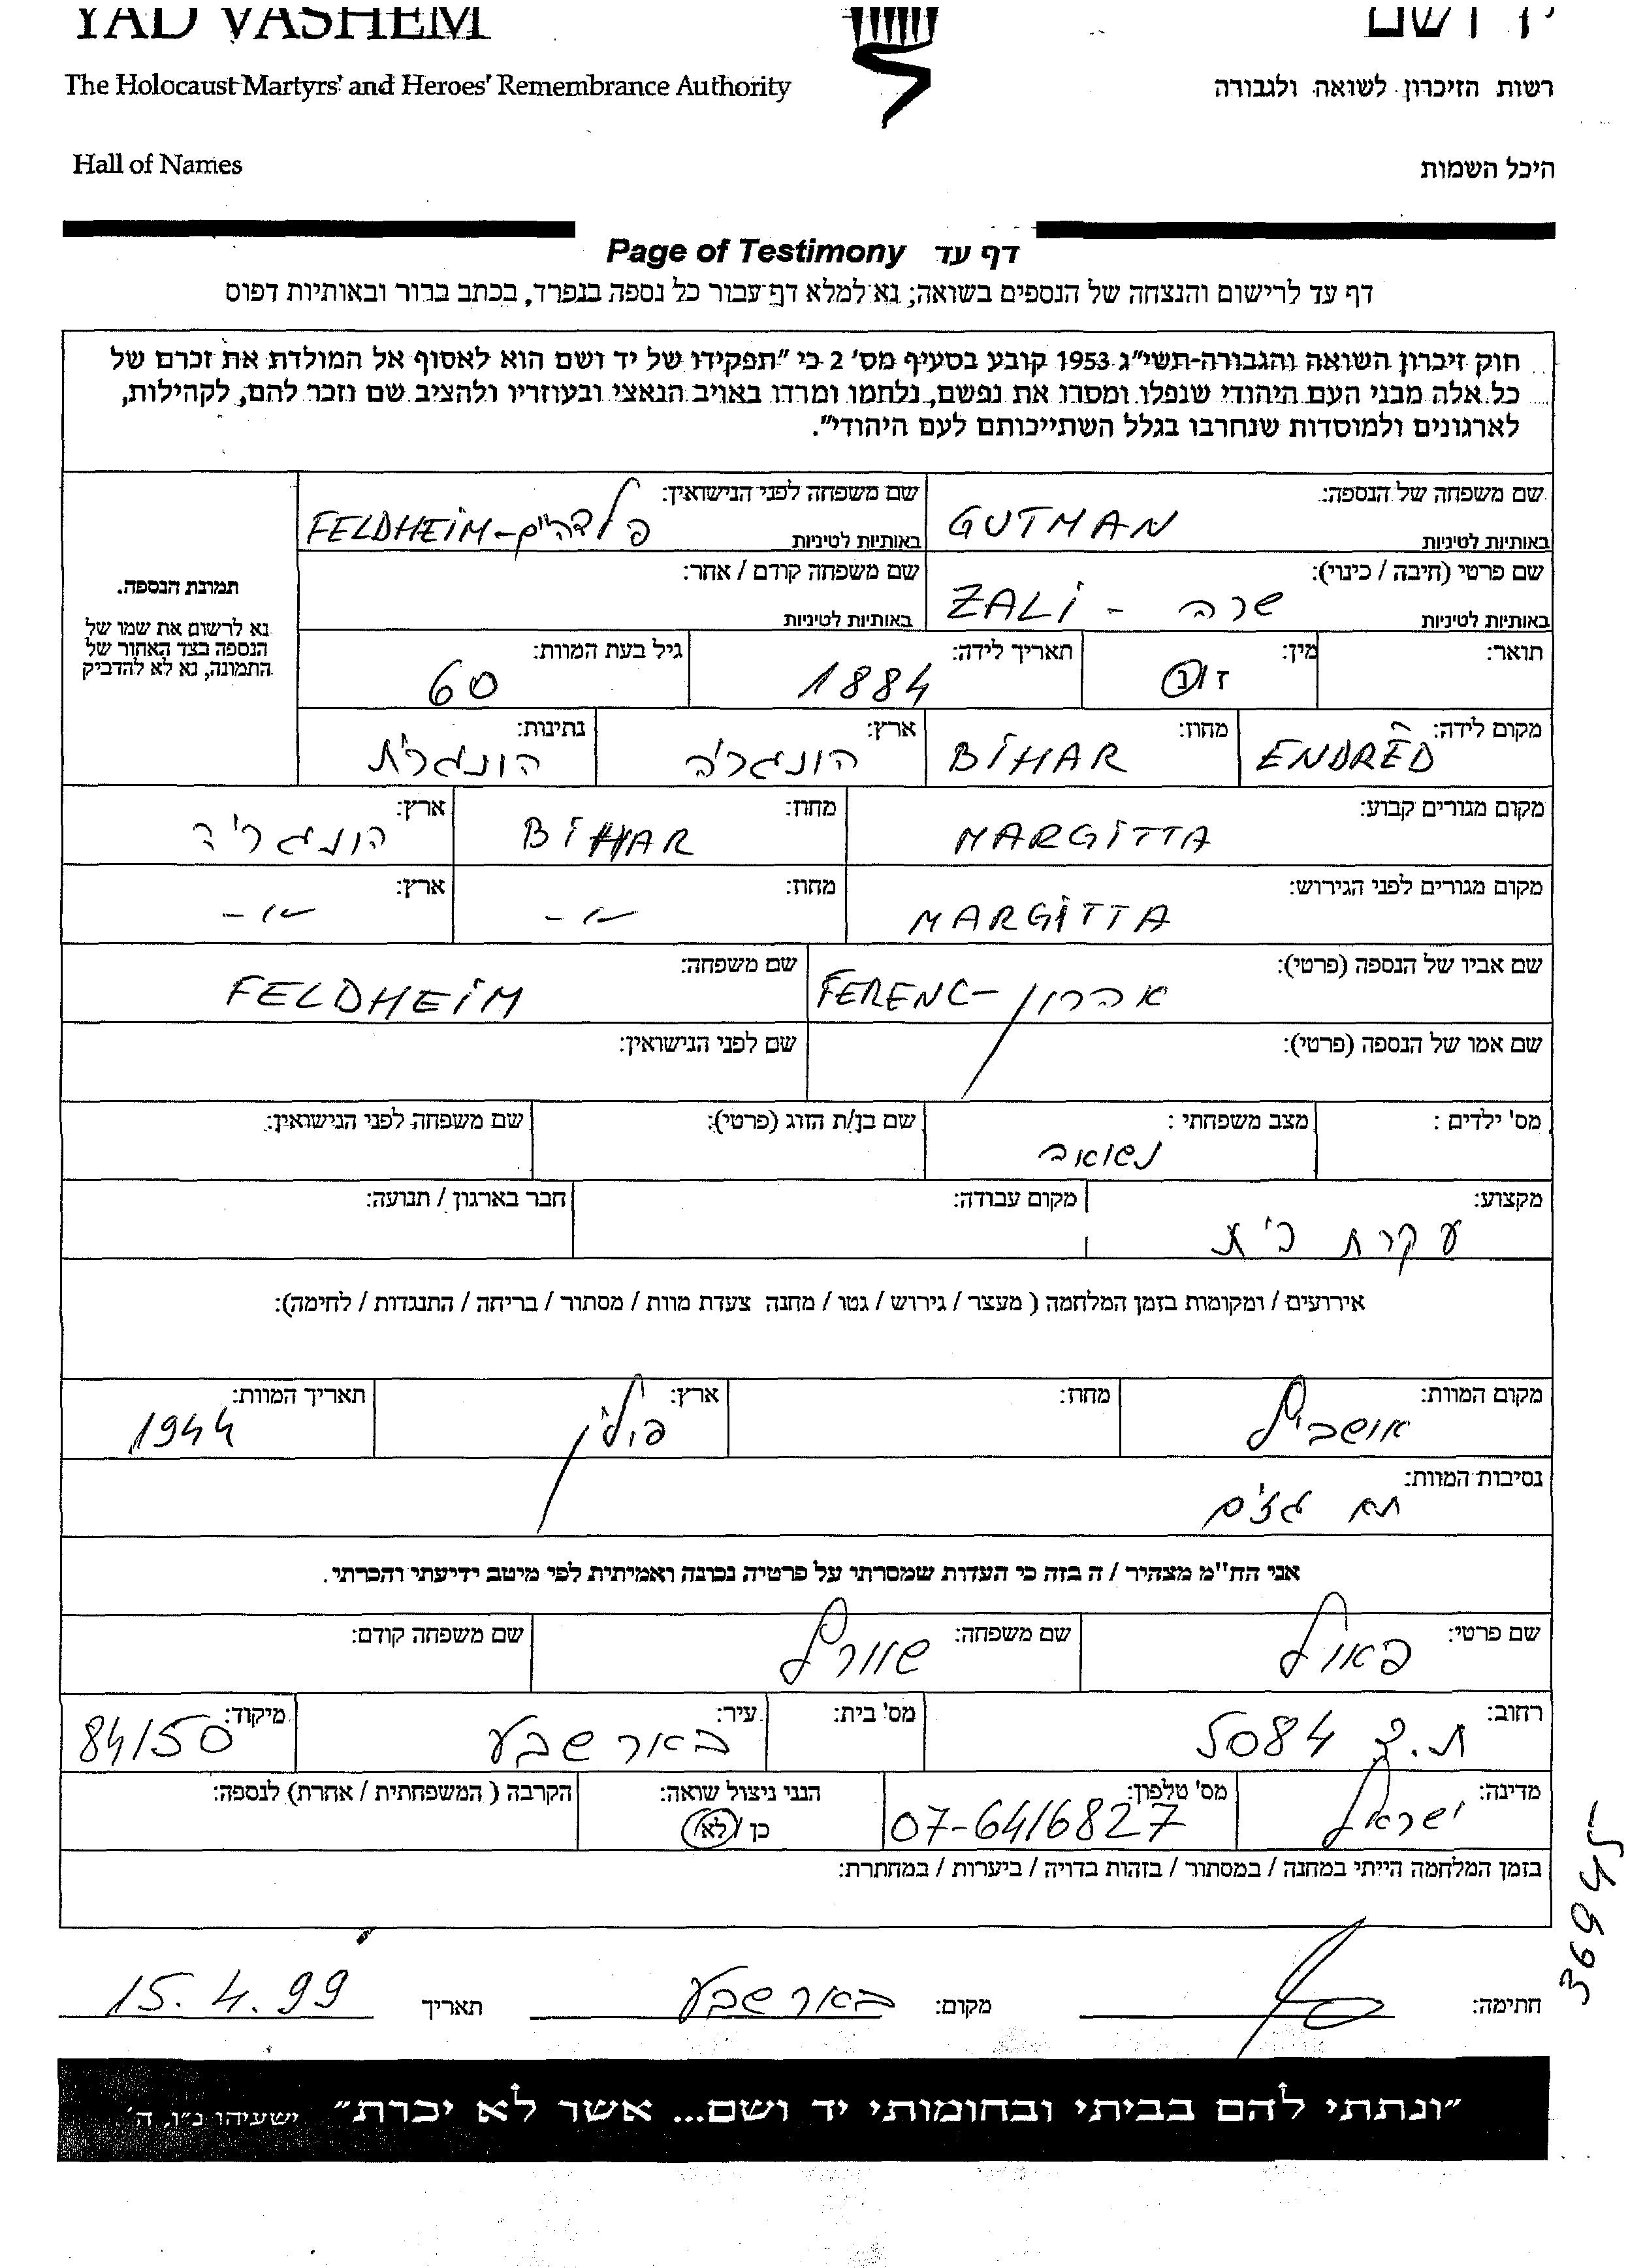 YAD VASHEM יד ושם
The Holocaust Martyrs' and Heroes' Remembrance Authority רשות הזיכרון לשואה ולגבורה
Hall of Names היכל השמות
Page of Testimony דף עד
דף עד לרישום והנצחה של הנספים בשואה; נא למלא דף עבור כל נספה בנפרד, בכתב ברור ובאותיות דפוס
חוק זיכרון השואה והגבורה-תשי"ג 1953 קובע בסעיף מס' 2 כי "תפקידו של יד ושם הוא לאסוף אל המולדת את זכרם של
כל אלה מבני העם היהודי שנפלו ומסרו את נפשם, נלחמו ומרדו באויב הנאצי ובעוזריו ולהציב שם וזכר להם, לקהילות,
לארגונים ולמוסדות שנחרבו בגלל השתייכותם לעם היהודי".
שם משפחה של הנספה: GUTMAN באותיות לטיניות
שם משפחה לפני הנישואין: פלדהיים - FELDHEIM באותיות לטיניות
תמונת הנספה.
נא לרשום את שמו של
הנספה בצד האחור של
התמונה, נא לא להדביק
שם פרטי (חיבה / כינוי): שרה - ZALI באותיות לטיניות
שם משפחה קודם / אחר: באותיות לטיניות
תואר: מין: ז/נ תאריך לידה: 1884 גיל בעת המוות: 60
מקום לידה: ENDRÉD מחוז: BIHAR ארץ: הונגריה נתינות: הונגרית
מקום מגורים קבוע: MARGITTA מחוז: BIHAR ארץ: הונגריה
מקום מגורים לפני הגירוש: MARGITTA מחוז: -"- ארץ: -"-
שם אביו של הנספה (פרטי): אהרון - FERENC שם משפחה: FELDHEIM
שם אמו של הנספה (פרטי): שם לפני הנישואין:
מס' ילדים : מצב משפחתי : נשואה שם בן/ת הזוג (פרטי): שם משפחה לפני הנישואין:
מקצוע: עקרת בית מקום עבודה: חבר בארגון / תנועה:
אירועים / ומקומות בזמן המלחמה ( מעצר / גירוש / גטו / מחנה צעדת מוות / מסתור / בריחה / התנגדות / לחימה):
מקום המוות: אושביץ מחוז: ארץ: פולין תאריך המוות: 1944
נסיבות המוות: תא גזים
אני הח"מ מצהיר / ה בזה כי העדות שמסרתי על פרטיה נכונה ואמיתית לפי מיטב ידיעתי והכרתי.
שם פרטי: פאול שם משפחה: שוורץ שם משפחה קודם:
רחוב: ת.ד 5084 מס' בית: עיר: באר שבע מיקוד: 84150
מדינה: ישראל מס' טלפון: 07-6416827 הנני ניצול שואה: כן / לא הקרבה ( המשפחתית / אחרת) לנספה:
בזמן המלחמה הייתי במחנה / במסתור / בזהות בדויה / ביערות / במחתרת:
36945
חתימה: מקום: באר שבע תאריך 15.4.99
"ונתתי להם בביתי ובחומותי יד ושם... אשר לא יכרת" ישעיהו נ"ו, ה'